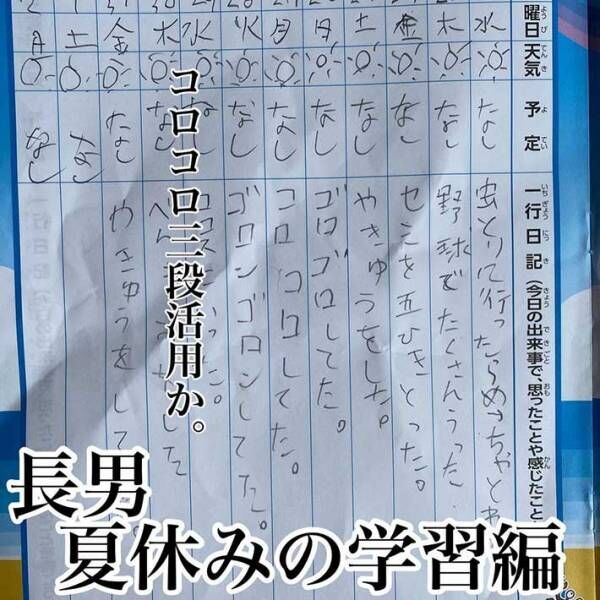 曜日 天気 予定 一行日記(今日の出来事で、思ったことや感じたこと
水 なし 虫とりに行ったらめっちゃとれ
木 なし 野球でたくさんうった
金 なし セミを五ひきとった。
土 なし やきゅうをした。
日 なし ゴロゴロしてた。
月 なし コロコロしてた。
火 なし ゴロンゴロンしてた。
水 なし
木 なし して
金 なし やきゅうをして
土 なし
なし
コロコロ三段活用か。
長男
夏休みの学習編